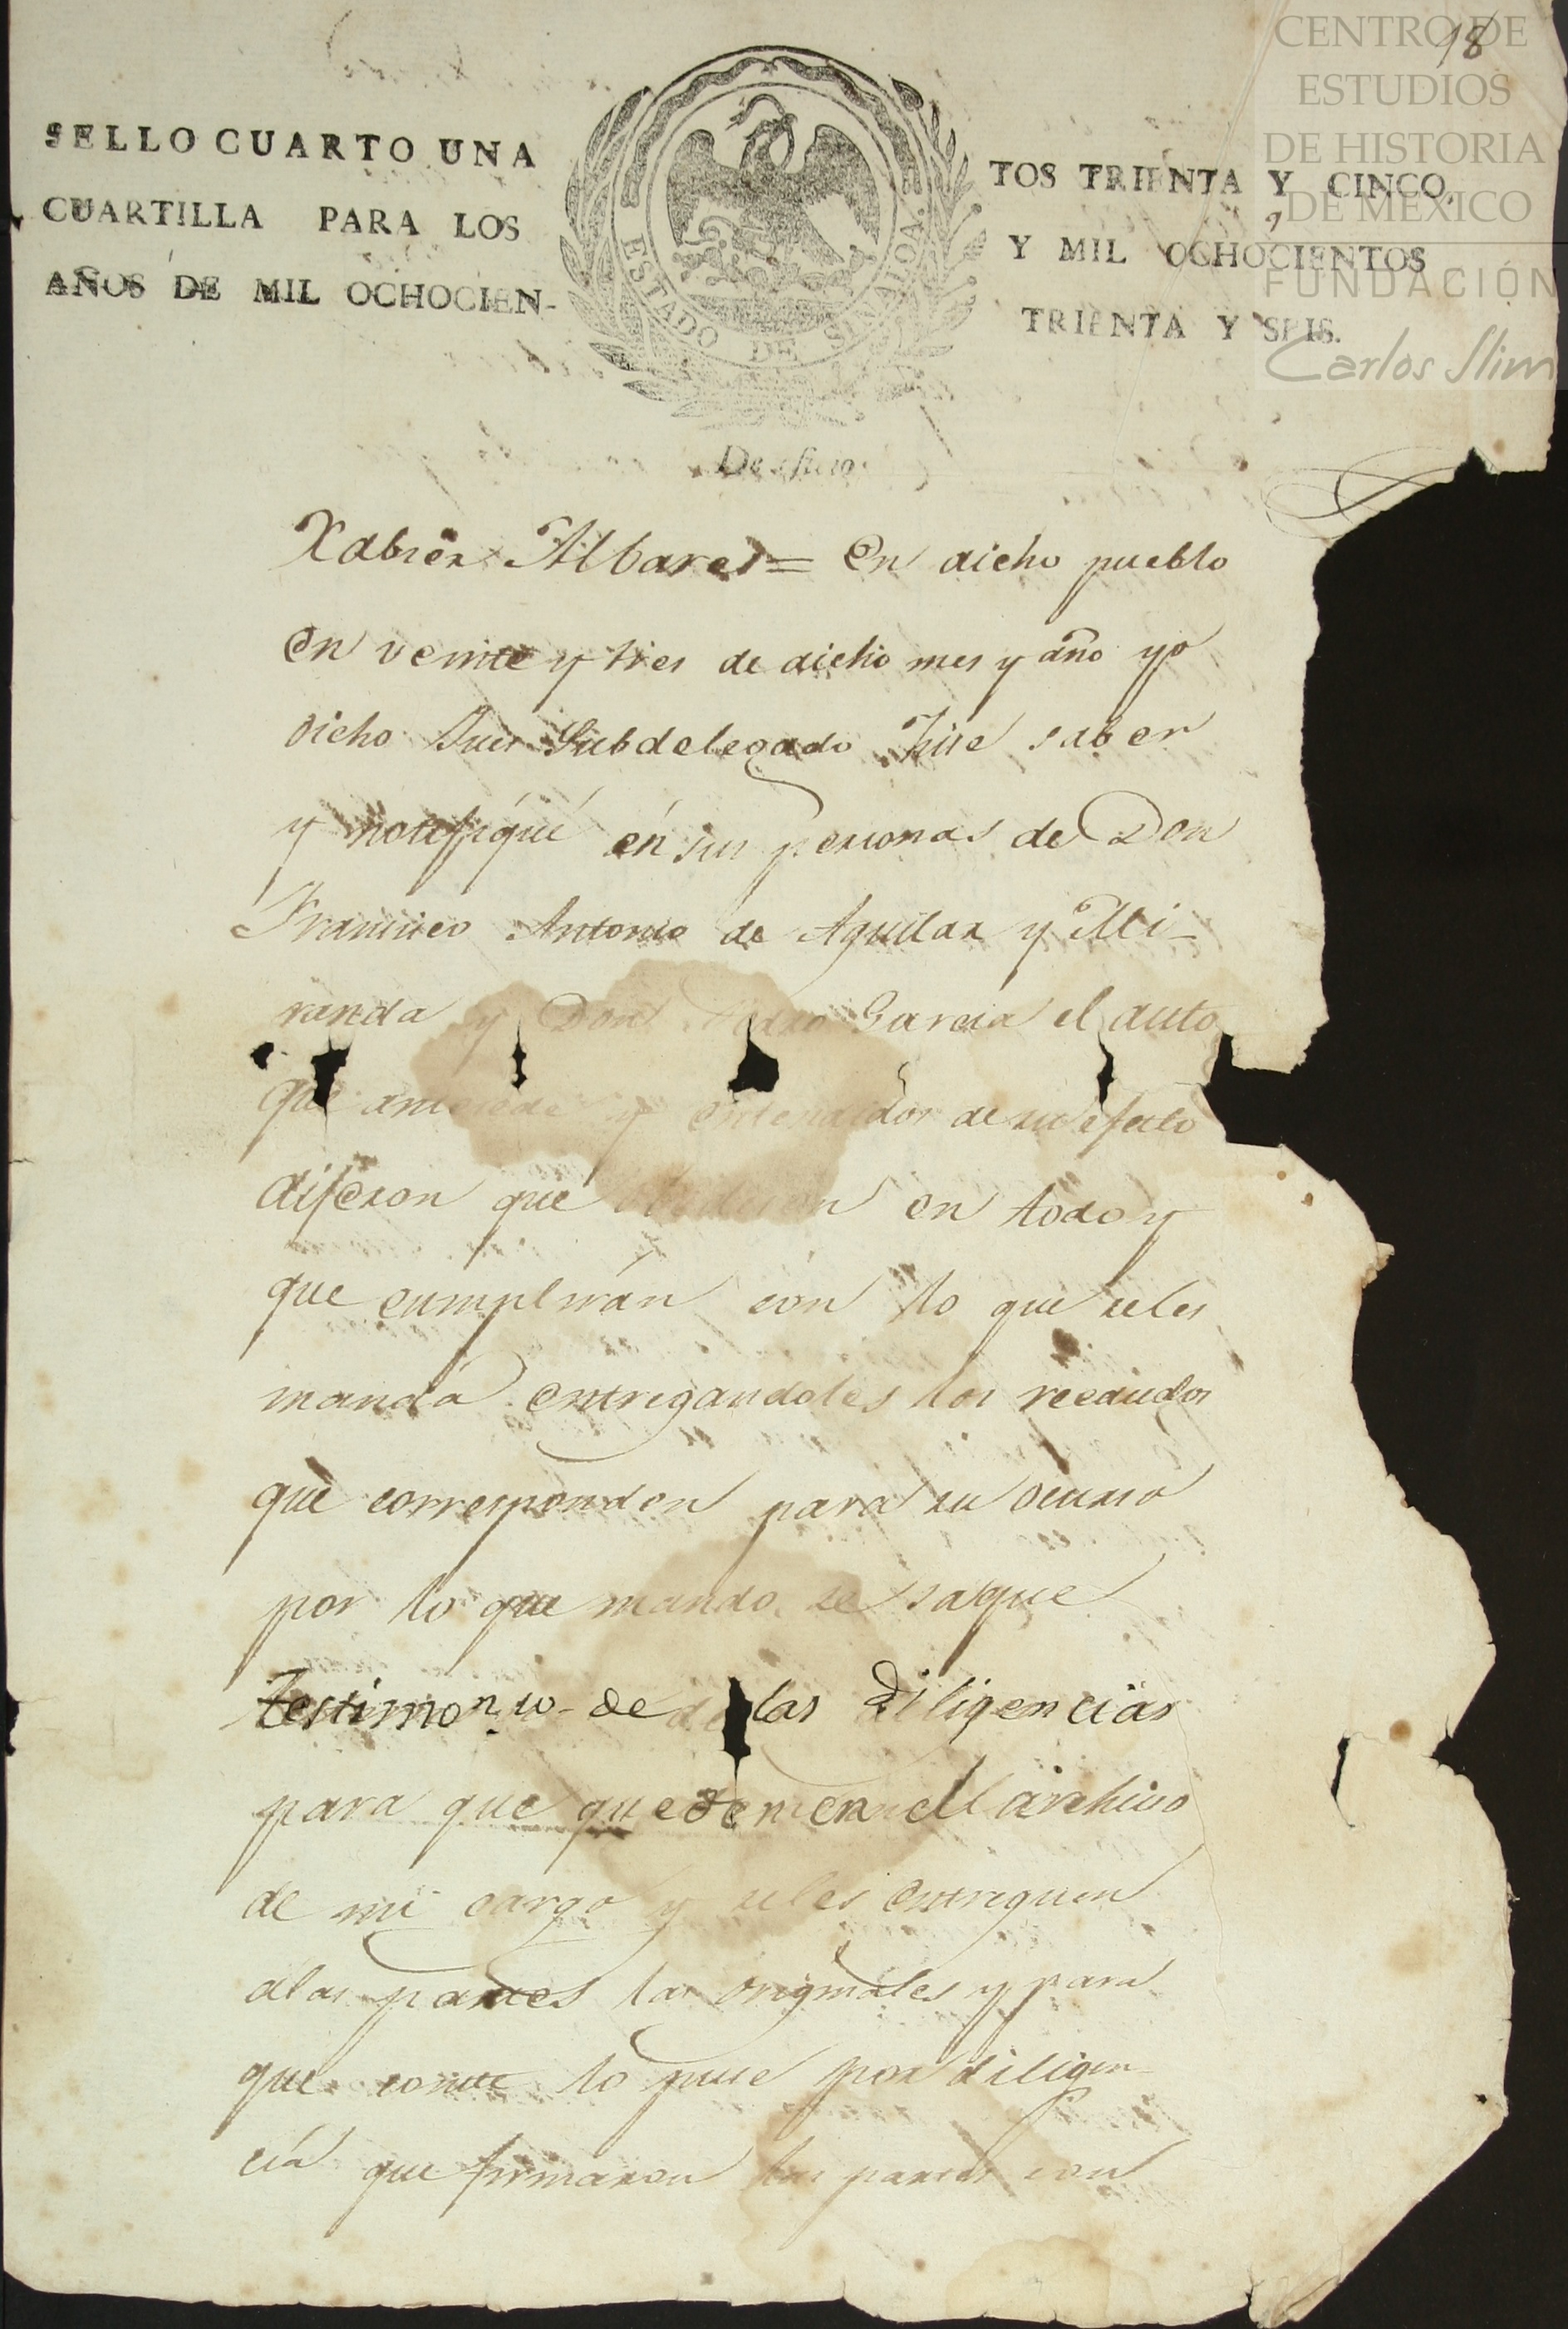 18
CENTRO DE
ESTUDIOS
DE HISTORIA
DE MÉXICO
FUNDACIÓN
Carlos Slim
SELLO CUARTO UNA
CUARTILLA PARA LOS
AÑOS DE MIL OCHOCIEN-
ESTADO DE SINALOA.
TOS TRIENTA Y CINCO,
Y MIL OCHOCIENTOS
TRIENTA Y SEIS.
De oficio
Xabier Albares = En dicho pueblo
en veinte y tres de dicho mes y año yo
dicho Jues Subdelegado hise saber
y notifiqué en sus personas de Don
Francisco Antonio de Aguilar y Mi-
randa y Don Pedro Garcia el auto
que antecede y entendidos de su efecto
dijeron que obedecen en todo y
que cumplirán con lo que seles
manda entregandoles los recaudos
que corresponden para su ocurso
por lo que mando se saque
testimonio de las diligencias
para que queden en el archivo
de mi cargo y seles entreguen
alas partes las originales y para
que conste lo puse por diligen-
cia que firmaron las partes con